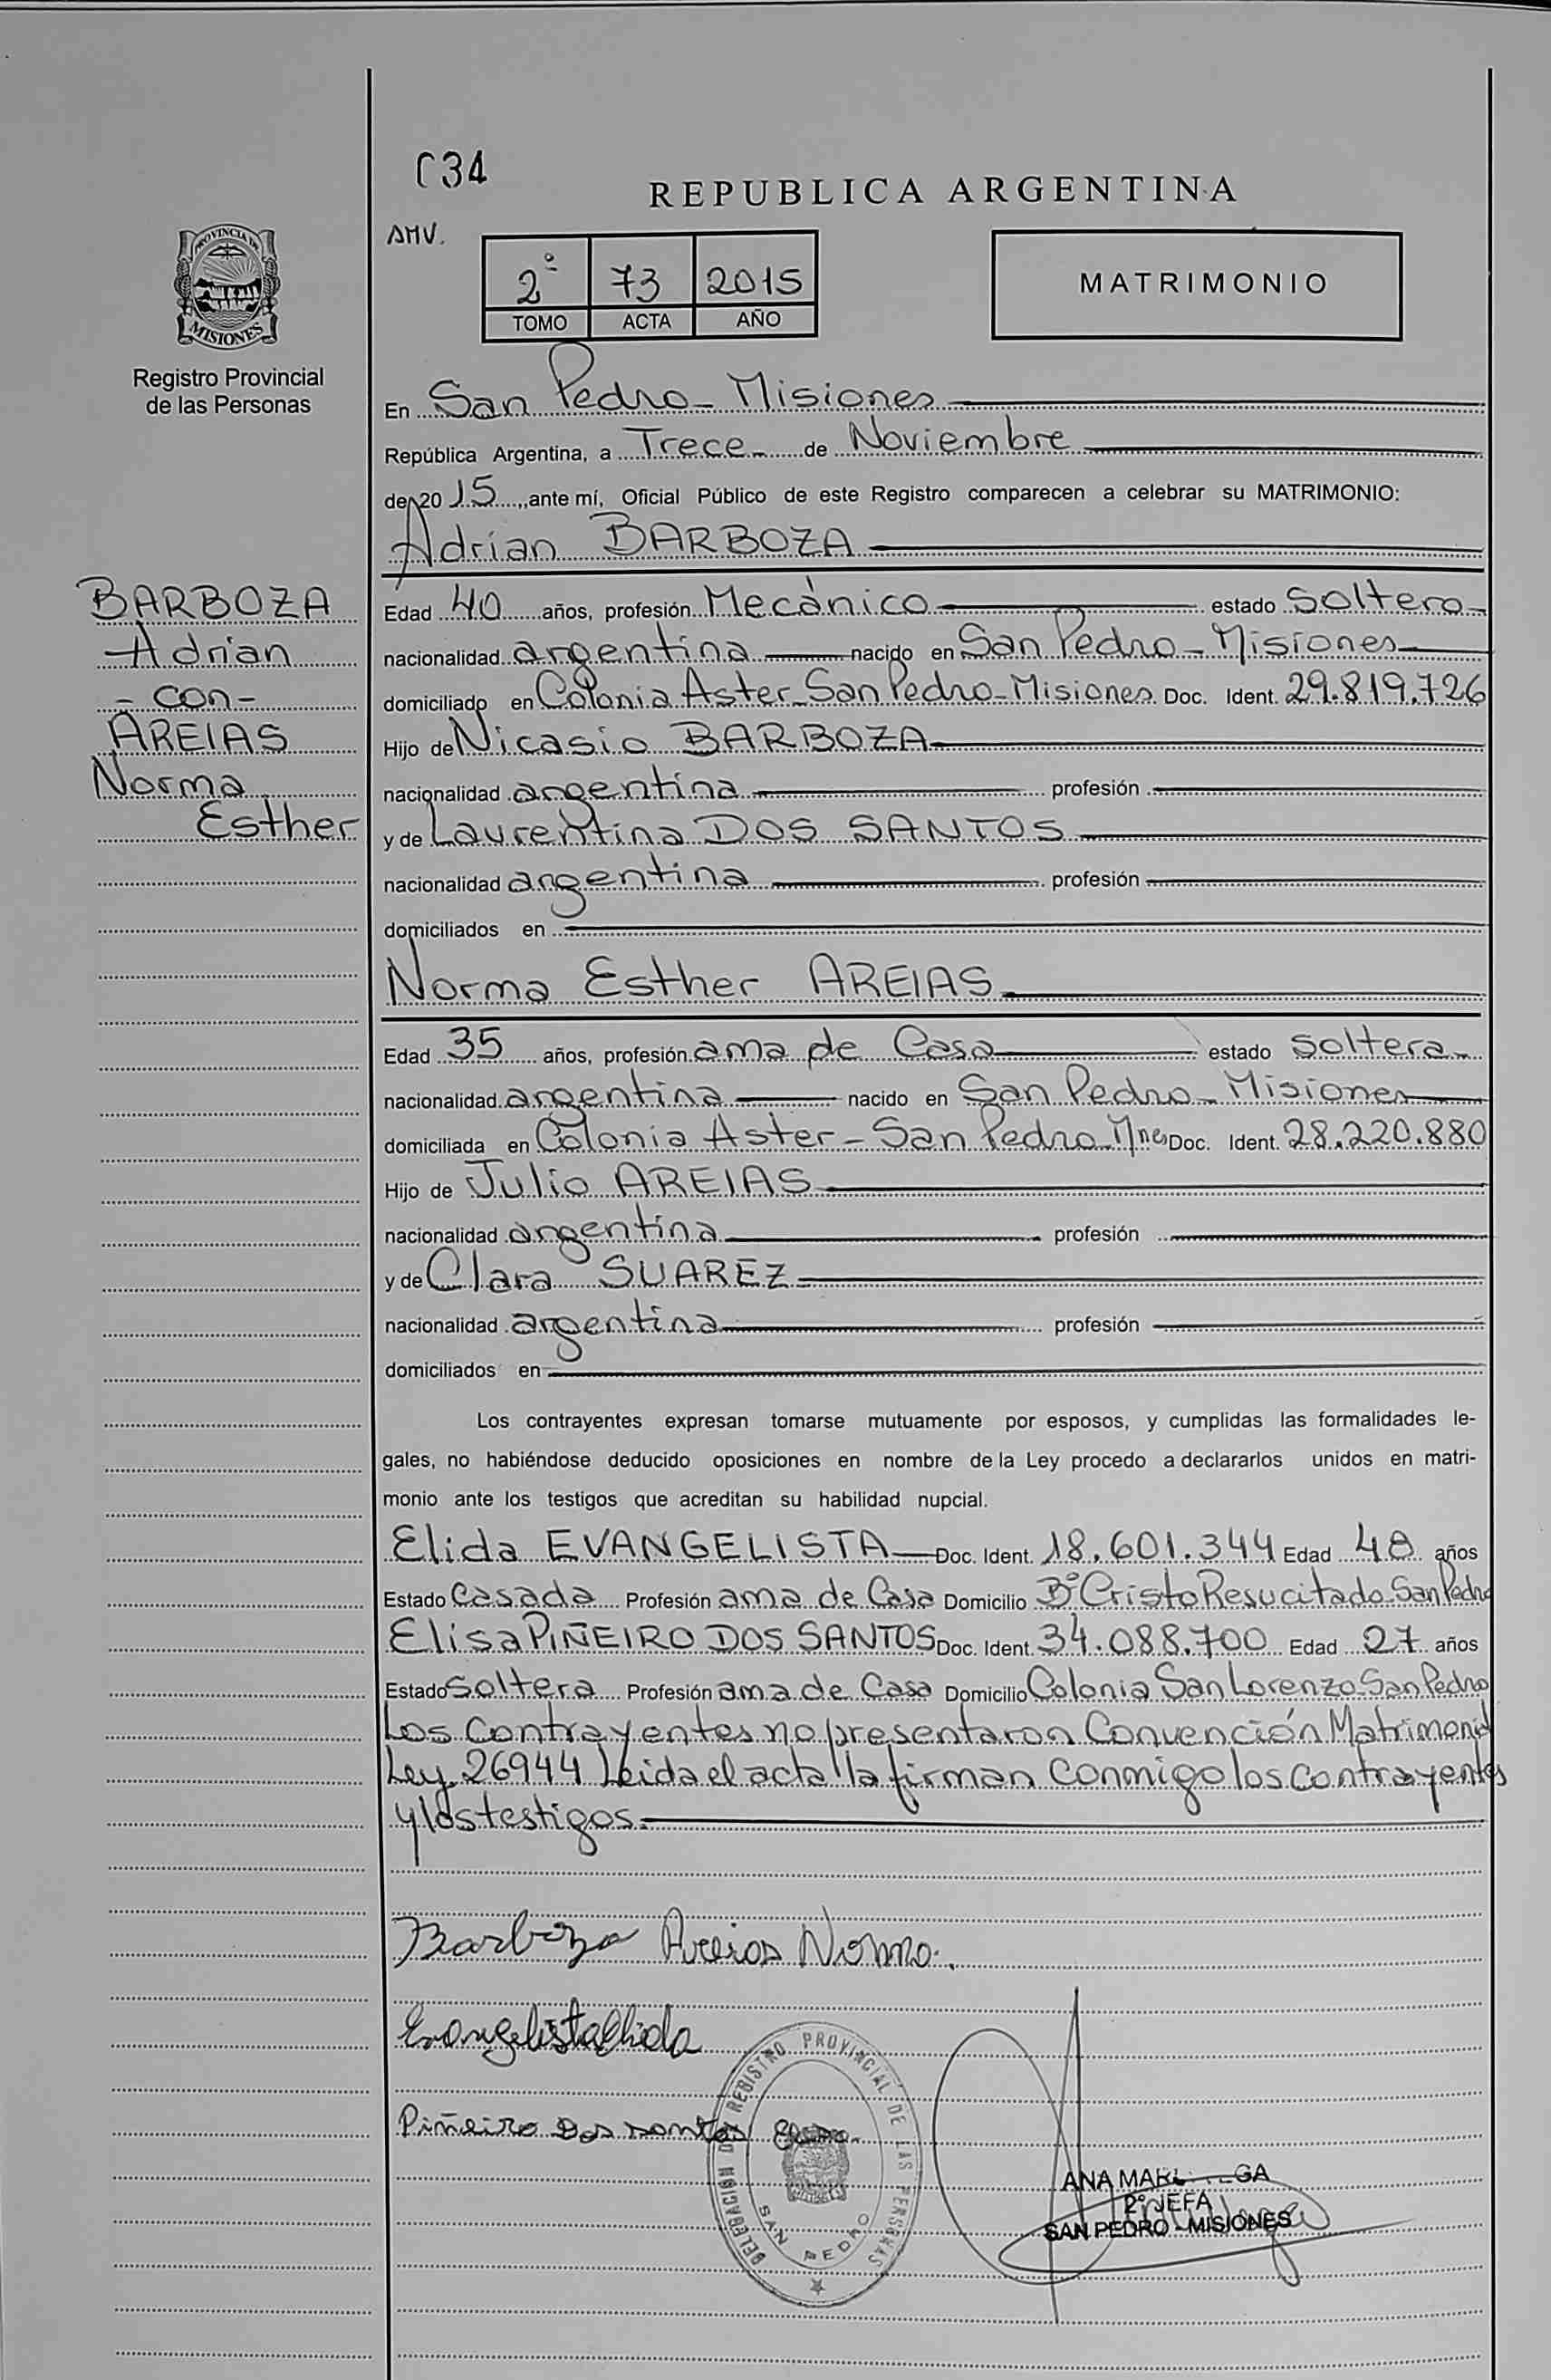 034
REPUBLICA ARGENTINA
AMV.
2º 73 2015
TOMO ACTA AÑO
MATRIMONIO
PROVINCIA DE
MISIONES
Registro Provincial
de las Personas
En San Pedro - Misiones
República Argentina, a Trece de Noviembre
de 20 15, ante mí, Oficial Público de este Registro comparecen a celebrar su MATRIMONIO:
Adrian BARBOZA
BARBOZA
Adrian
- con -
AREIAS
Norma
Esther
Edad 40 años, profesión Mecánico estado Soltero
nacionalidad argentina nacido en San Pedro - Misiones
domiciliado en Colonia Aster - San Pedro - Misiones Doc. Ident. 29.819.726
Hijo de Nicasio BARBOZA
nacionalidad argentina profesión
y de Laurentina DOS SANTOS
nacionalidad argentina profesión
domiciliados en
Norma Esther AREIAS
Edad 35 años, profesión ama de Casa estado Soltera
nacionalidad argentina nacido en San Pedro - Misiones
domiciliada en Colonia Aster - San Pedro Mnes Doc. Ident. 28.220.880
Hijo de Julio AREIAS
nacionalidad argentina profesión
y de Clara SUAREZ
nacionalidad argentina profesión
domiciliados en
Los contrayentes expresan tomarse mutuamente por esposos, y cumplidas las formalidades le-
gales, no habiéndose deducido oposiciones en nombre de la Ley procedo a declararlos unidos en matri-
monio ante los testigos que acreditan su habilidad nupcial.
Elida EVANGELISTA Doc. Ident. 18.601.344 Edad 48 años
Estado Casada Profesión ama de Casa Domicilio Bº Cristo Resucitado San Pedro
Elisa PIÑEIRO DOS SANTOS Doc. Ident. 34.088.700 Edad 27 años
Estado Soltera Profesión ama de Casa Domicilio Colonia San Lorenzo San Pedro
Los Contrayentes no presentaron Convención Matrimonial
Ley 26944 Leida el acta la firman conmigo los contrayentes
y los testigos.
Barboza Areias Norma.
Evangelista Elida
Piñeiro Dos santos Elisa
DELEGACION DEL REGISTRO PROVINCIAL DE LAS PERSONAS
SAN PEDRO
ANA MARI GA
2º JEFA
SAN PEDRO - MISIONES